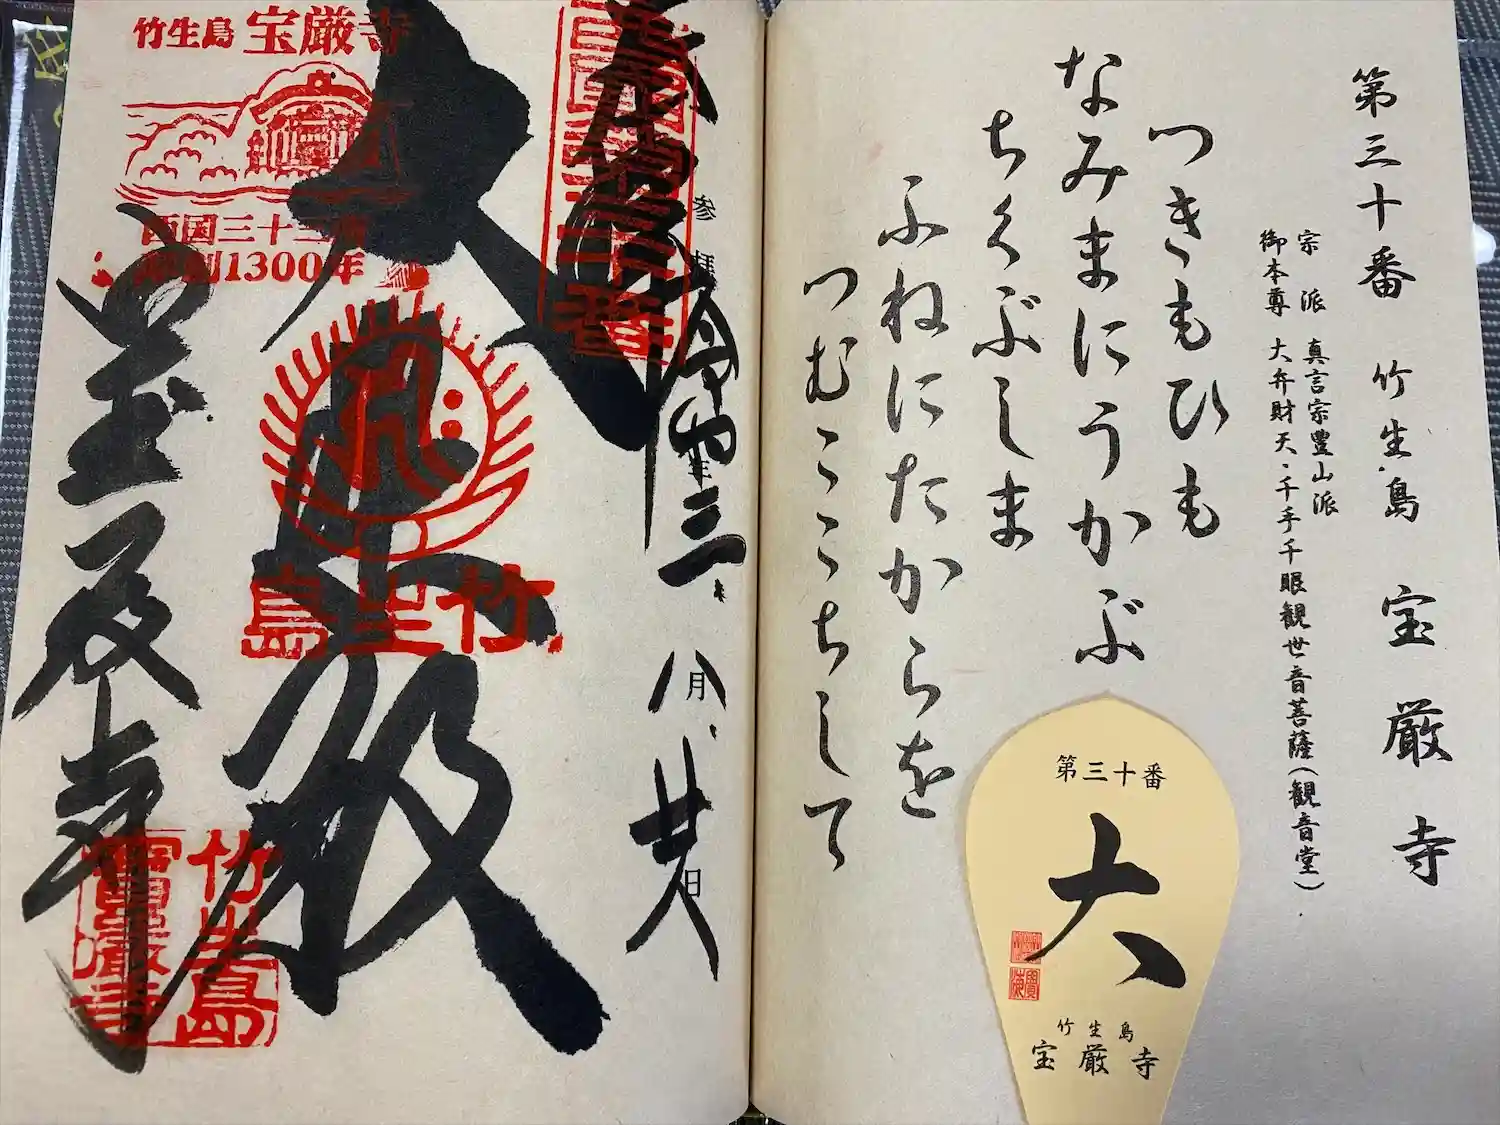 第三十番 竹生島 宝厳寺
宗派 真言宗豊山派
御本尊 大弁財天・千手千眼観世音菩薩(観音堂)
つきもひも
なみまにうかぶ
ちくぶしま
ふねにたからを
つむここちして
第三十番
大
竹生島
宝厳寺
西国第三十番
奉拝
参拝
年
三
八月
廿八日
大悲殿
宝厳寺
竹生島 宝厳寺
西国三十三所
草創1300年
竹生島
竹生島
寶厳寺